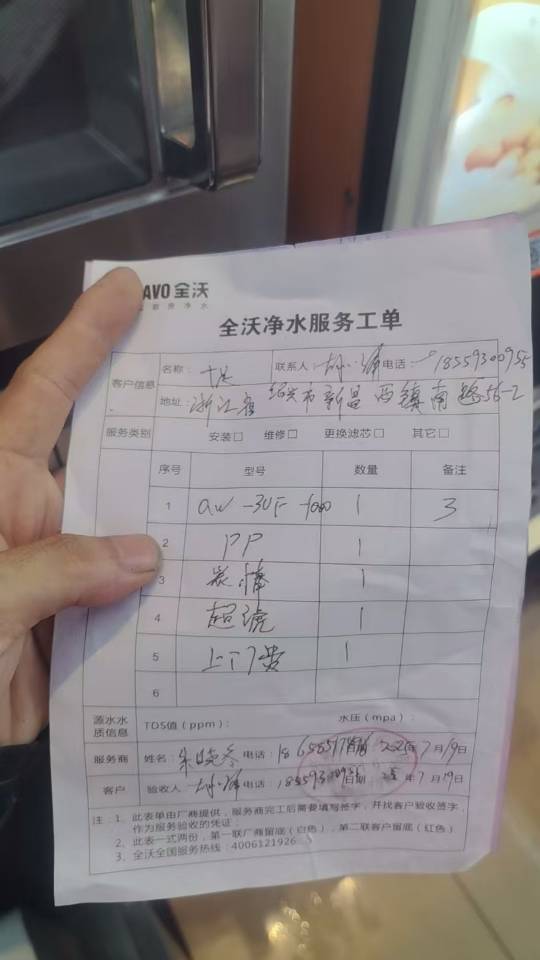 AVO 全沃
全沃净水服务工单
客户信息 名称： 联系人： 电话：18559300955
地址：浙江省绍兴市新昌 西镇南路56-2
服务类别 安装□ 维修□ 更换滤芯□ 其它□
序号 型号 数量 备注
1 QW-3UF-1000 1 3
2 PP 1
3 炭棒 1
4 超滤 1
5 上门费 1
6
源水水质信息 TDS值（ppm）： 水压（mpa）：
服务商 姓名：朱晓冬 电话： 日期 2025年7月19日
客户 验收人 电话 日期 年7月19日
注：1、此表单由厂商提供，服务商完工后需要填写签字，并找客户验收签字，
作为服务验收的凭证；
2、此表一式两份，第一联厂商留底（白色），第二联客户留底（红色）
3、全沃全国服务热线：4006121926